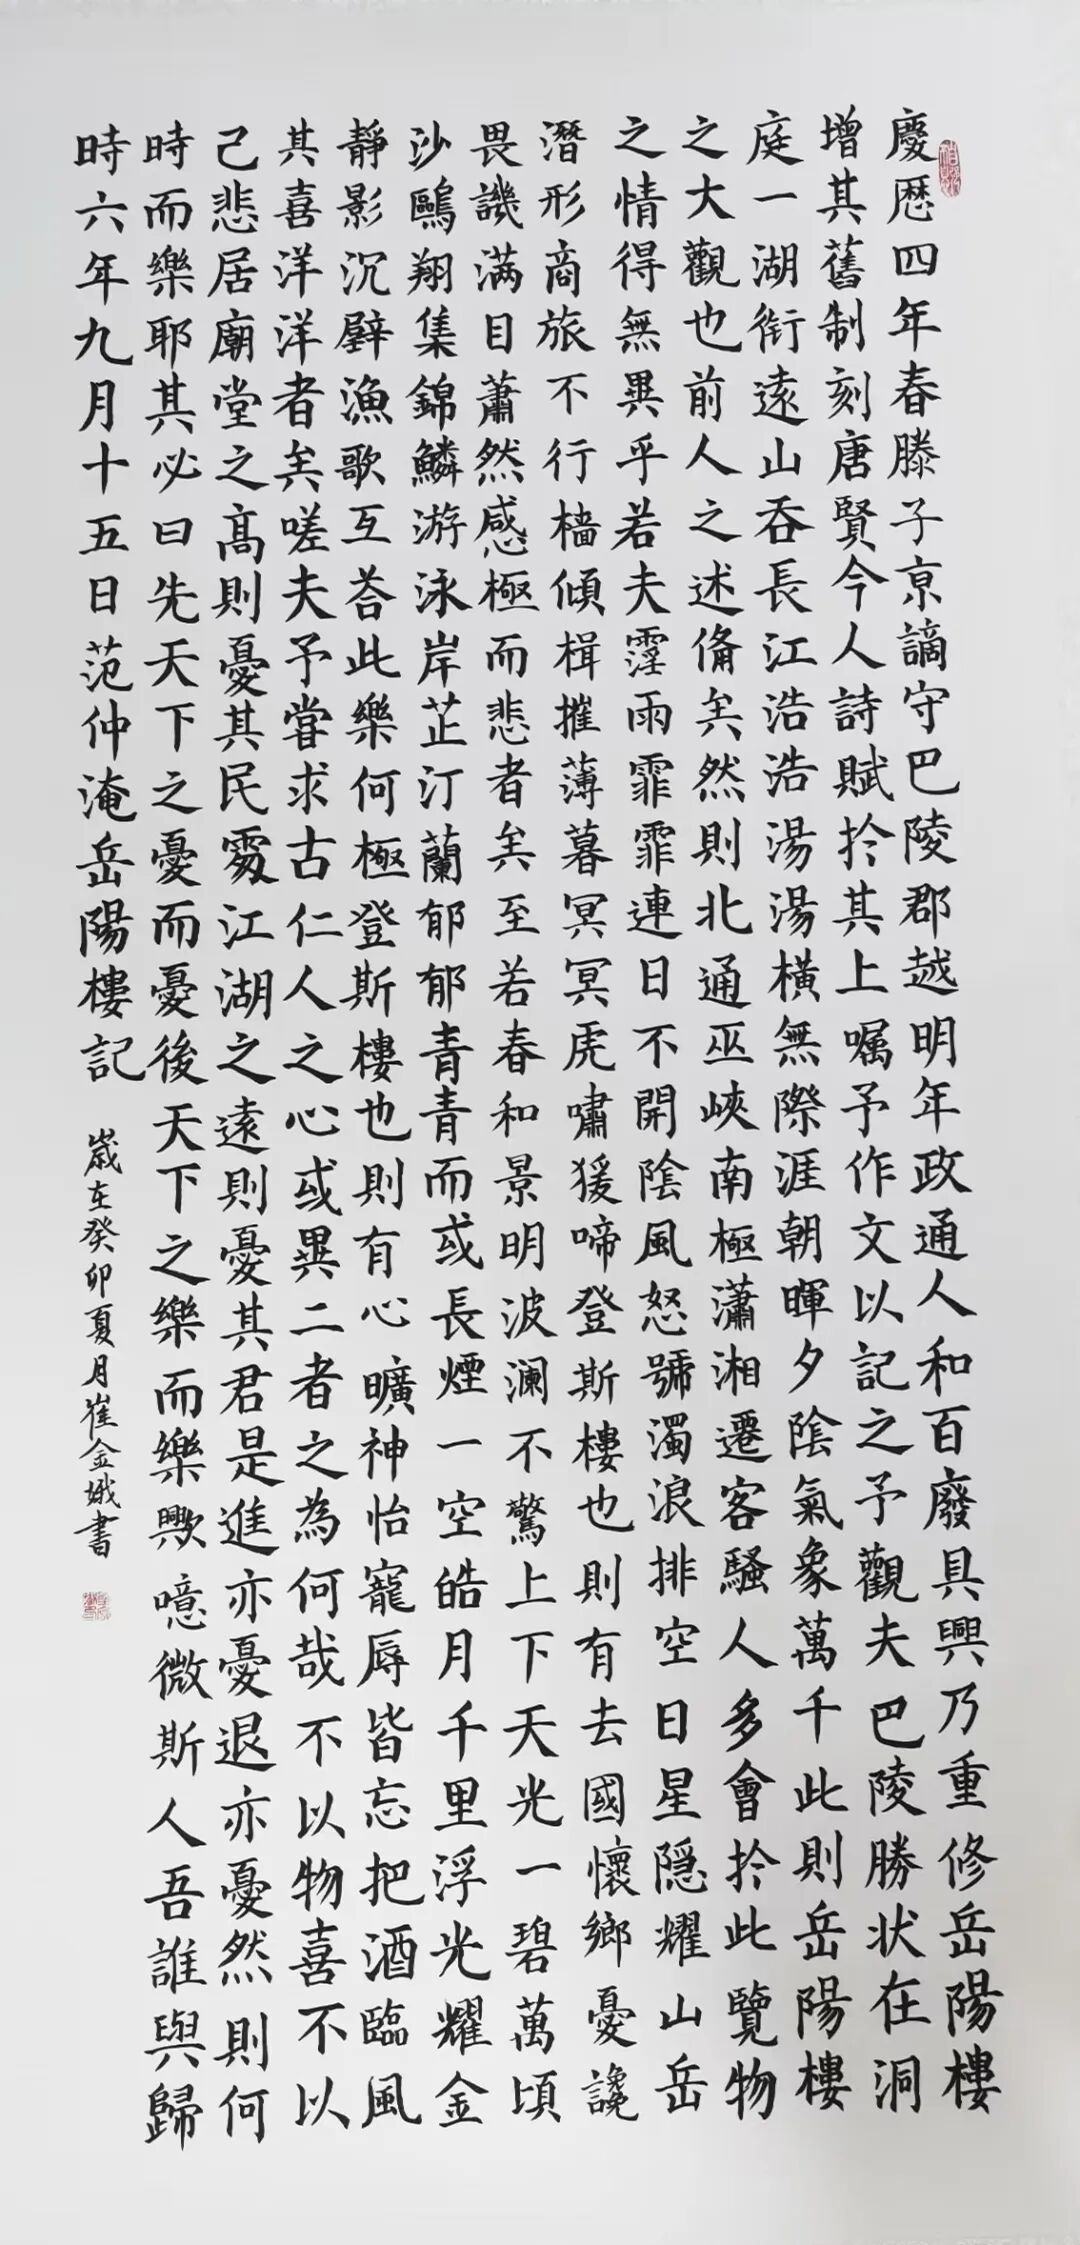 慶歷四年春滕子京謫守巴陵郡越明年政通人和百廢具興乃重修岳陽樓
增其舊制刻唐賢今人詩賦扵其上嘱予作文以記之予觀夫巴陵勝状在洞
庭一湖銜遠山吞長江浩浩湯湯橫無際涯朝暉夕陰氣象萬千此則岳陽樓
之大觀也前人之述俻矣然則北通巫峽南極瀟湘遷客騷人多會扵此覽物
之情得無異乎若夫霪雨霏霏連日不開陰風怒號濁浪排空日星隠耀山岳
潛形商旅不行檣傾楫摧薄暮冥冥虎嘯猨啼登斯樓也則有去國懷鄉憂讒
畏譏满目蕭然感極而悲者矣至若春和景明波澜不驚上下天光一碧萬頃
沙鷗翔集錦鱗游泳岸芷汀蘭郁郁青青而或長煙一空皓月千里浮光耀金
静影沉璧漁歌互荅此樂何極登斯樓也則有心曠神怡寵辱皆忘把酒臨風
其喜洋洋者矣嗟夫予嘗求古仁人之心或異二者之為何哉不以物喜不以
己悲居廟堂之髙則憂其民處江湖之遠則憂其君是進亦憂退亦憂然則何
時而樂耶其必曰先天下之憂而憂後天下之樂而樂歟噫微斯人吾誰與歸
時六年九月十五日范仲淹岳陽樓記 歲在癸卯夏月崔金娥書